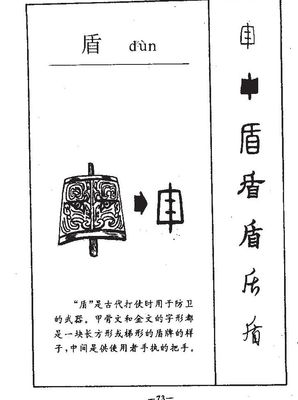 盾 dùn
“盾”是古代打仗时用于防卫
的武器。甲骨文和金文的字形都
是一块长方形或梯形的盾牌的样
子，中间是供使用者手执的把手。
盾
盾
盾
盾
—73—